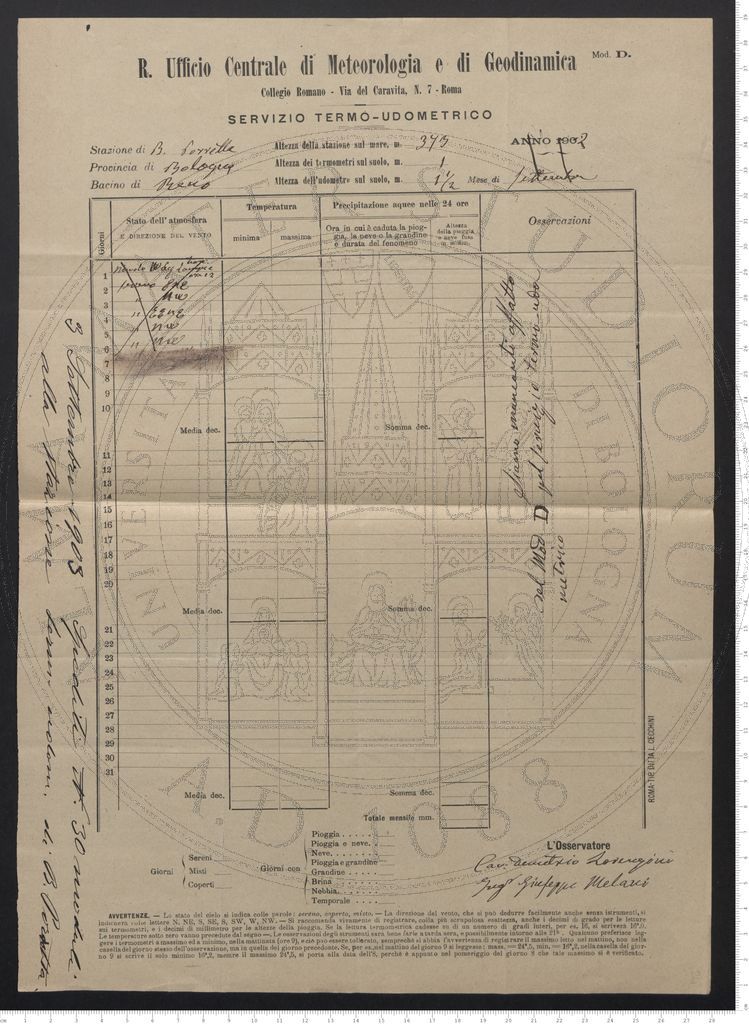 R. Ufficio Centrale di Meteorologia e di Geodinamica
Mod. D.
Collegio Romano - Via del Caravita, N. 7 - Roma
SERVIZIO TERMO-UDOMETRICO
Stazione di B. Porretta
Altezza della stazione sul mare, m. 373
ANNO 1902
Provincia di Bologna
Altezza dei termometri sul suolo, m. 1
Bacino di Reno
Altezza dell'udometro sul suolo, m. 1 1/2
Mese di Settembre
Giorni
Stato dell'atmosfera
E DIREZIONE DEL VENTO
Temperatura
minima
massima
Precipitazione aquee nelle 24 ore
Ora in cui è caduta la pioggia, la neve o la grandine e durata del fenomeno
Altezza della pioggia e neve fusa in millim.
Osservazioni
1
2
3
4
5
6
7
8
9
10
Media dec.
Somma dec.
11
12
13
14
15
16
17
18
19
20
Media dec.
Somma dec.
21
22
23
24
25
26
27
28
29
30
31
Media dec.
Somma dec.
Totale mensile mm.
Siamo mancanti affatto
del Mod D pel servizio termo udo
metrico
3 Settembre 1903 Spediti N. 30 moduli
alla Stazione termoudom. di B. Porretta
ROMA-TIP. DITTA L. CECCHINI
Giorni
Sereni
Misti
Coperti
Giorni con
Pioggia
Pioggia e neve.
Neve.
Pioggia e grandine
Grandine
Brina
Nebbia
Temporale
L'Osservatore
Cav. Demetrio Lorenzini
Ing Giuseppe Melani
AVVERTENZE. - Lo stato del cielo si indica colle parole: sereno, coperto, misto. - La direzione del vento, che si può dedurre facilmente anche senza istrumenti, si
indicherà colle lettere N, NE, E, SE, S, SW, W, NW. - Si raccomanda vivamente di registrare, colla più scrupolosa esattezza, anche i decimi di grado per le letture
sui termometri, e i decimi di millimetro per le altezze della pioggia. Se la lettura termometrica cadesse su di un numero di gradi interi, per es. 16, si scriverà 16°,0.
Le temperature sotto zero vanno precedute dal segno -. Le osservazioni degli strumenti sarà bene farle a tarda sera, e possibilmente intorno alle 21h. Qualcuno preferisce leg-
gere i termometri a massimo ed a minimo, nella mattinata (ore 9), e ciò può essere tollerato, semprechè si abbia l'avvertenza di registrare il massimo letto nel mattino, non nella
casella del giorno stesso dell'osservazione, ma in quella del giorno precedente.
UNIVERSITA DI BOLOGNA
A D 1088